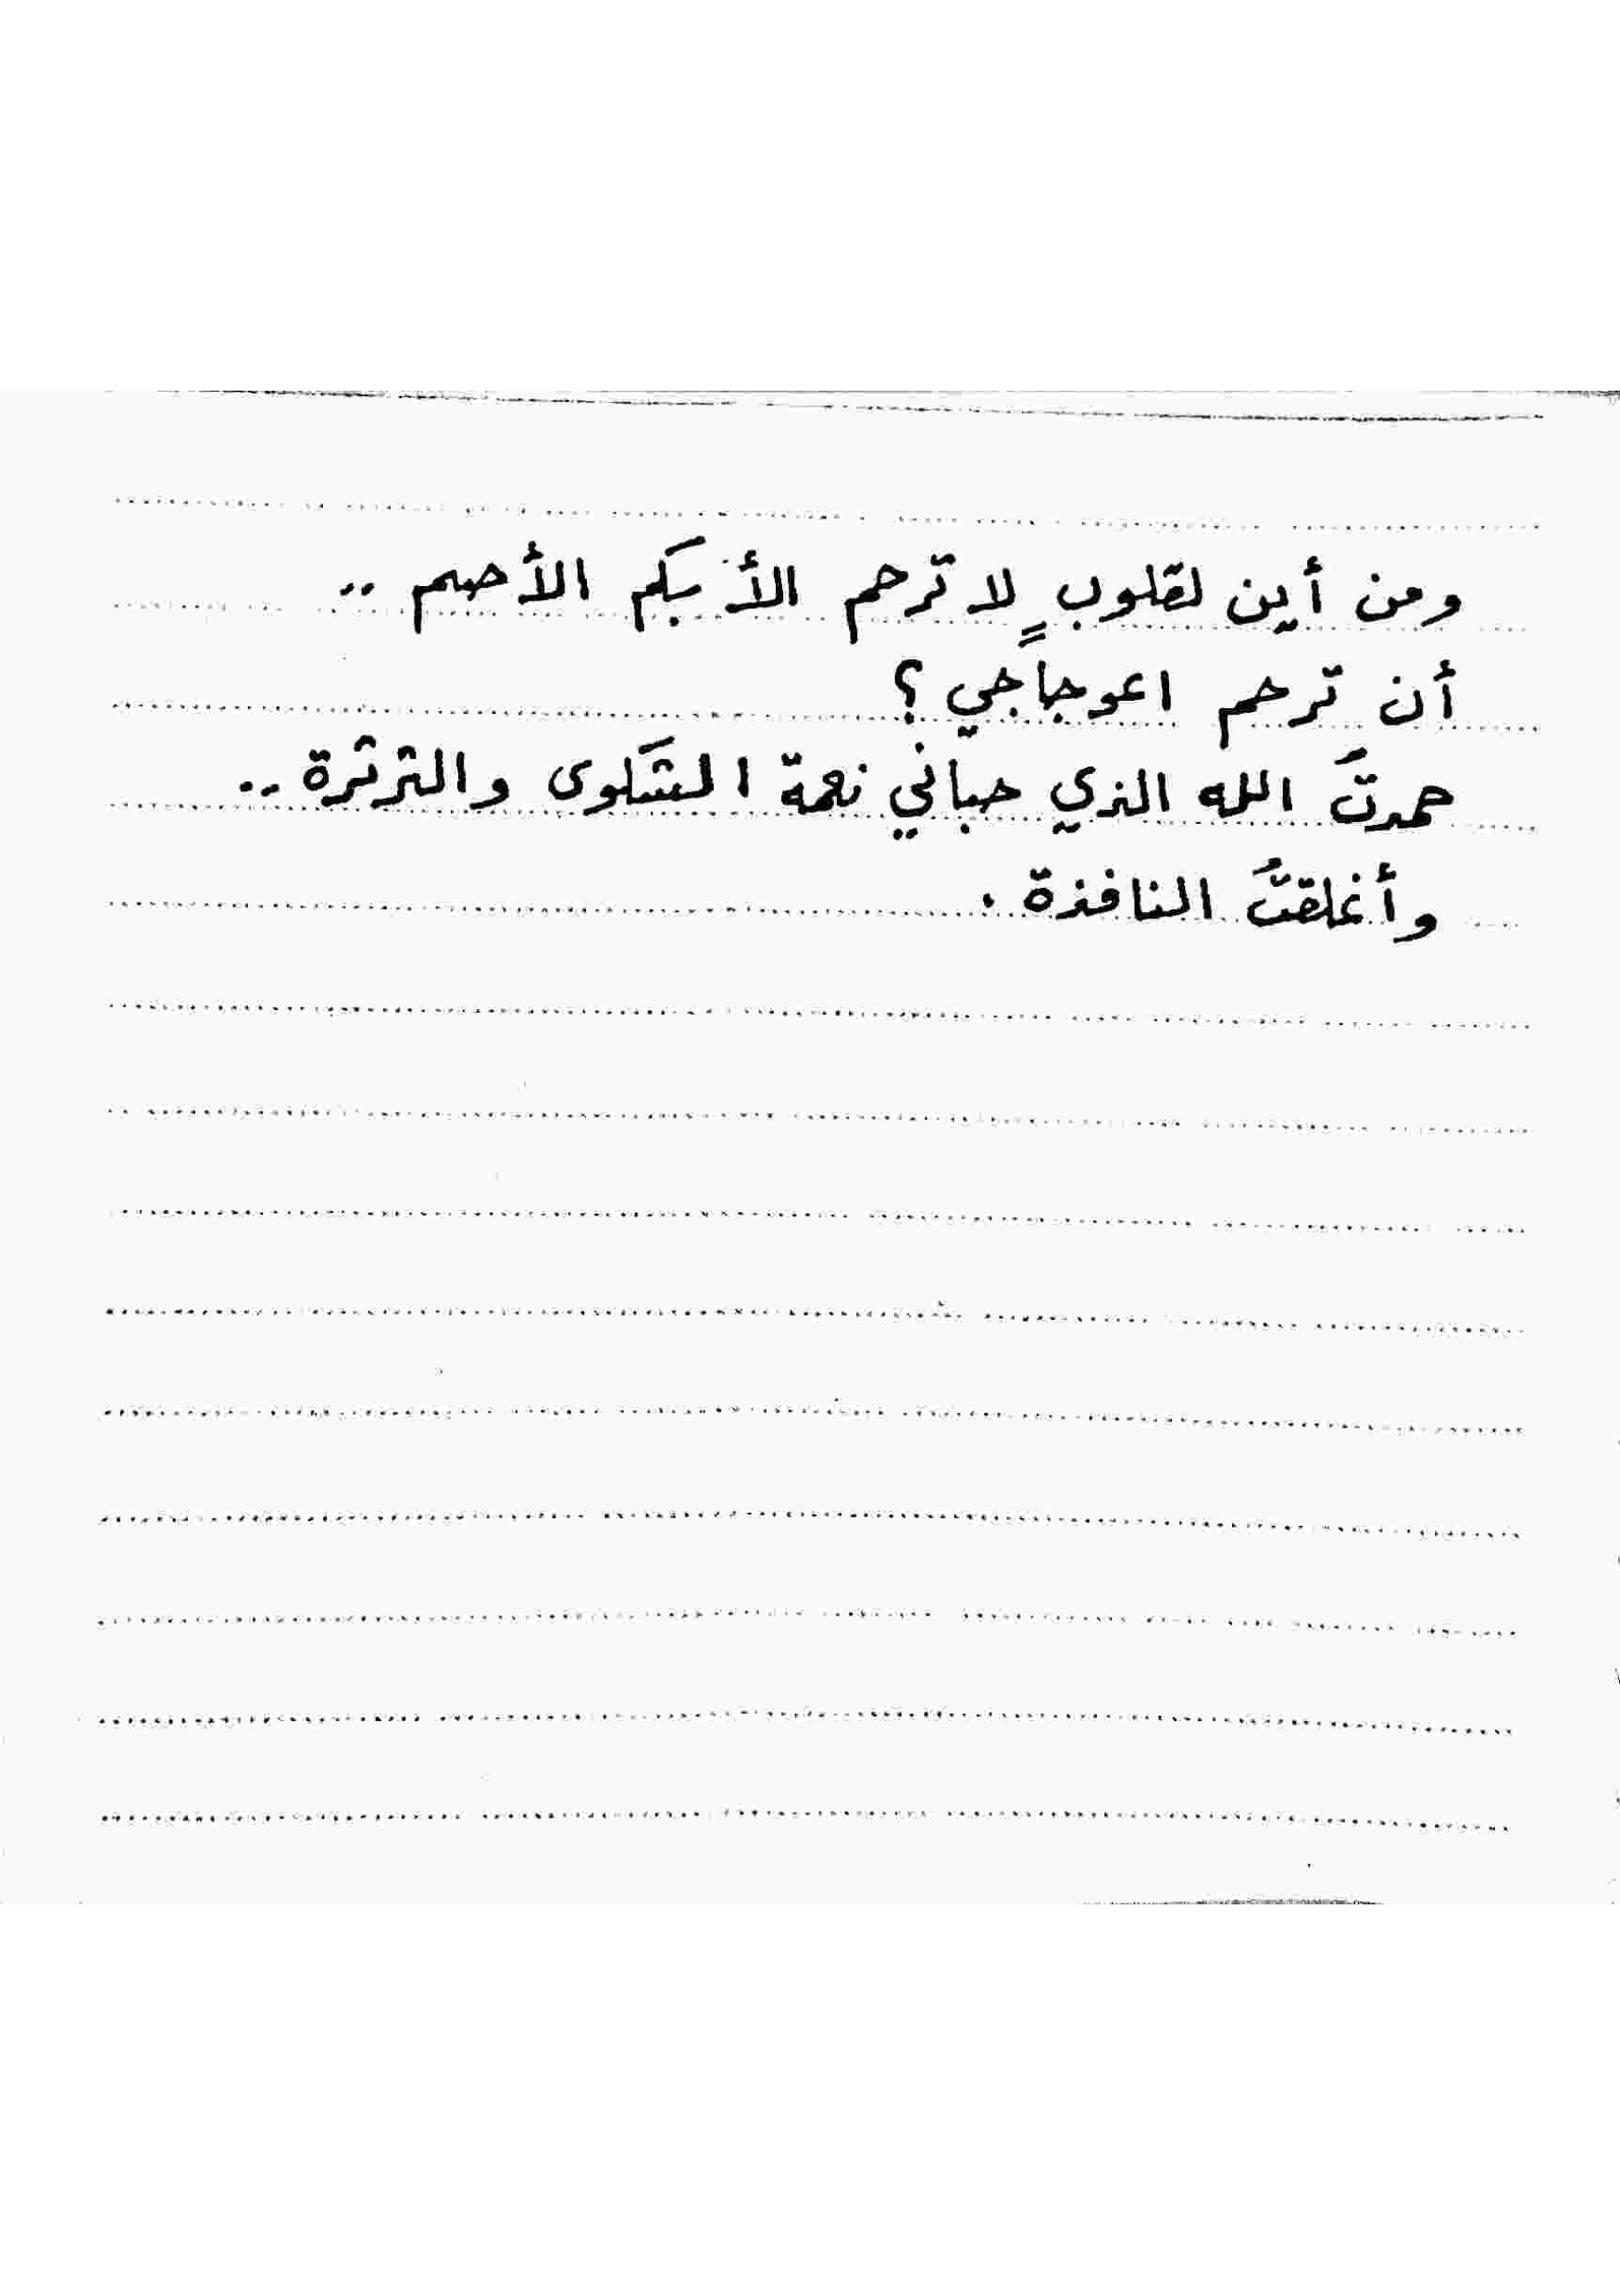 ومن أين لقلوبٍ لا ترحم الأبكم الأصم ..
أن ترحم اعوجاجي ؟
حمدتُ الله الذي حباني نعمة الشكوى والثرثرة ..
وأغلقتُ النافذة .